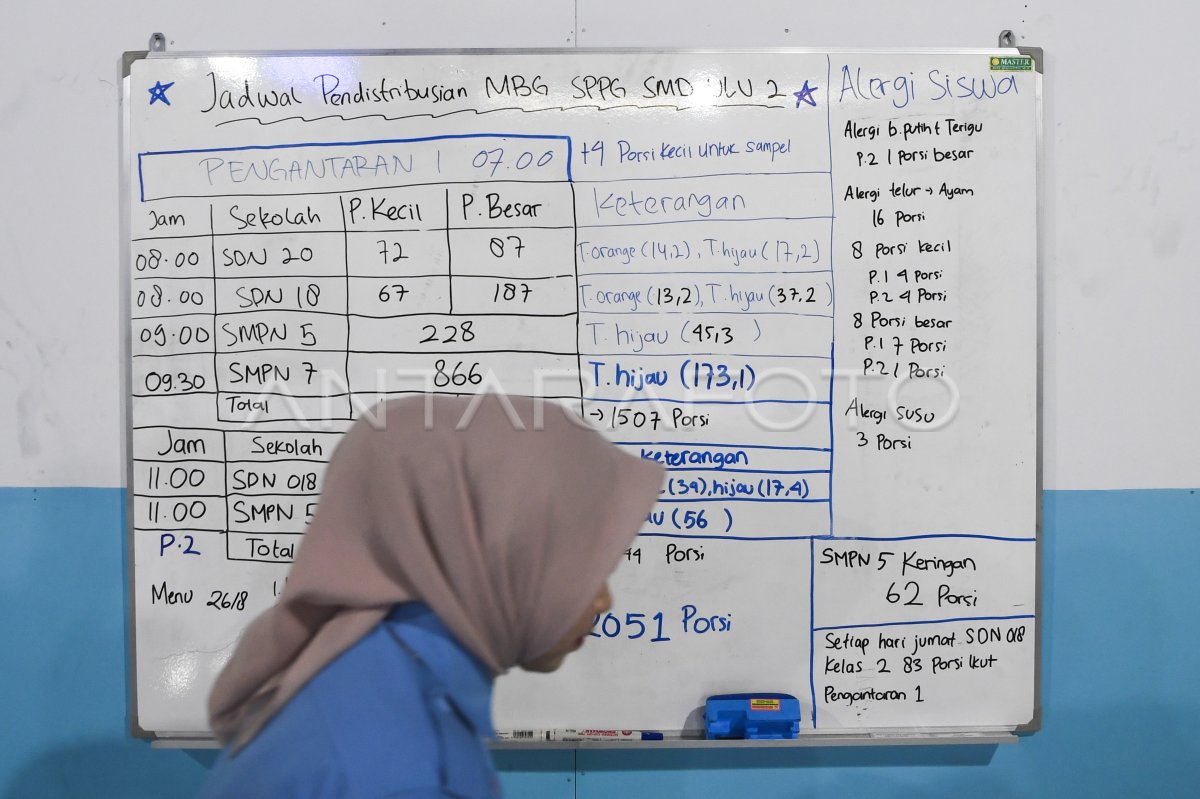 Jadwal Pendistribusian MBG SPPG SMD ULU 2
PENGANTARAN 1 07.00
+4 Porsi Kecil untuk sampel
Jam Sekolah P.Kecil P.Besar Keterangan
08.00 SDN 20 72 87 T.orange (14,2), T.hijau (17,2)
08.00 SDN 18 67 187 T.orange (13,2), T.hijau (37,2)
09.00 SMPN 5 228 T.hijau (45,3)
09.30 SMPN 7 866 T.hijau (173,1)
Total → 1507 Porsi
Jam Sekolah keterangan
11.00 SDN 018 (34), hijau (17,4)
11.00 SMPN 5 (56)
P.2 Total 44 Porsi
Menu 26/8
2051 Porsi
Alergi Siswa
Alergi b.putih & Terigu
P.2 1 Porsi besar
Alergi telur → Ayam
16 Porsi
8 Porsi kecil
P.1 4 Porsi
P.2 4 Porsi
8 Porsi besar
P.1 7 Porsi
P.2 1 Porsi
Alergi susu
3 Porsi
SMPN 5 Keringan
62 Porsi
Setiap hari jumat SDN 018
Kelas 2 83 Porsi Ikut
Pengantaran 1
MASTER
ANTARAFOTO